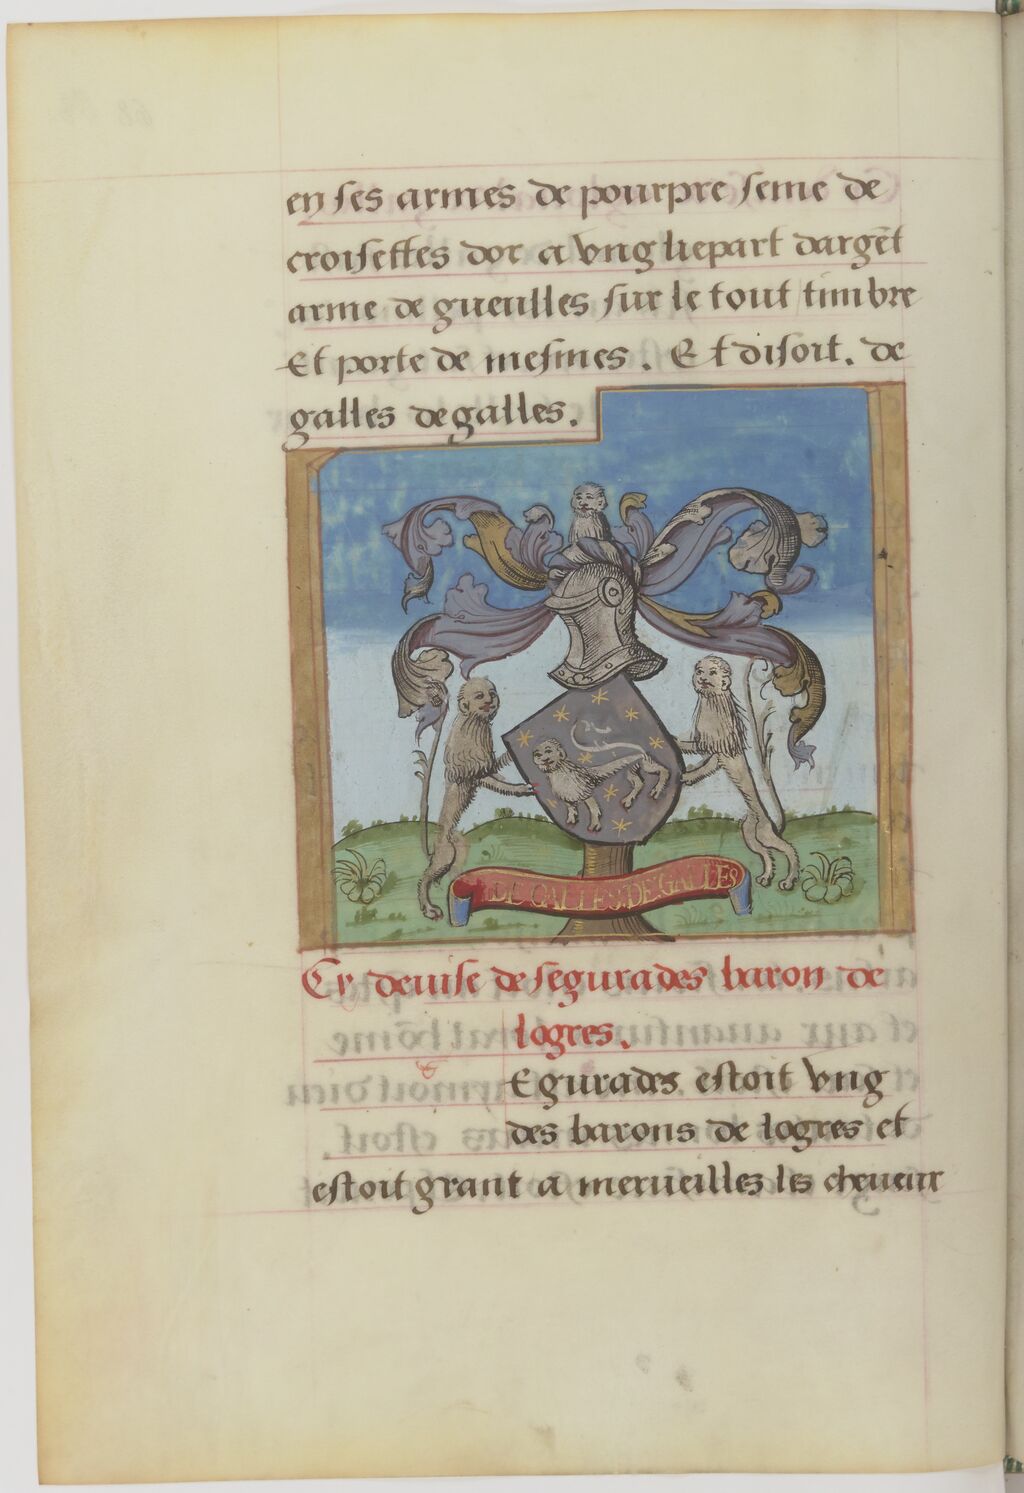 en ses armes de pourpre seme de
croisettes dor a vng liepart dargẽt
arme de gueulles sur le tout timbre
Et porte de mesmes. Et disoit. de
galles de galles.
DE GALLES. DE GALLES
Cy deuise de segurades baron de
logres.
Egurades estoit vng
des barons de logres et
estoit grant a merueilles les cheueux